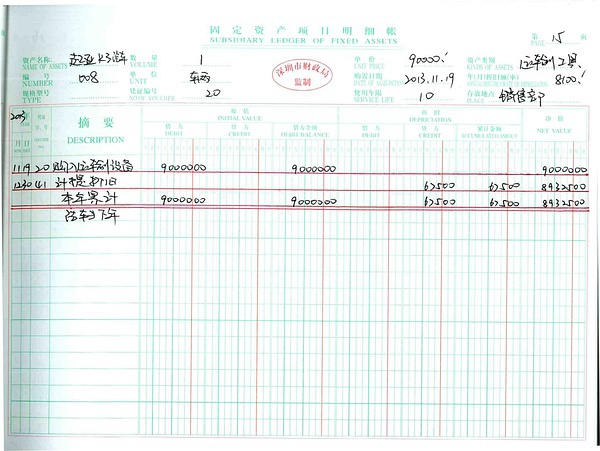 固定资产项目明细帐
SUBSIDIARY LEDGER OF FIXED ASSETS
第 15 页
PAGE
资产名称 起亚K3汽车 数量 1 单价 90000.- 资产类别 运输工具
NAME OF ASSETS VOLUME UNIT PRICE KINDS OF ASSETS
编号 008 单位 车西 购置日期 2013.11.19 年/月折旧额(率) 8100.-
NUMBER UNIT DATE OF ACQUISITION
规格型号 凭证编号 20 使用年限 10 存放地点 销售部
TYPE NO OF VOUCHER SERVICE LIFE PLACE
深圳市财政局
监制
2013 摘要 原值 折旧 净值
DESCRIPTION INITIAL VALUE DEPRECIATION NET VALUE
月 日 借方 贷方 借方余额 借方 贷方 累计金额
DEBIT CREDIT DEBIT BALANCE DEBIT CREDIT ACCUMULATED AMOUNT
11 19 20 购入运输设备 9000000 9000000 9000000
12 30 41 计提折旧 67500 67500 8932500
本年累计 9000000 9000000 67500 67500 8932500
结转下年